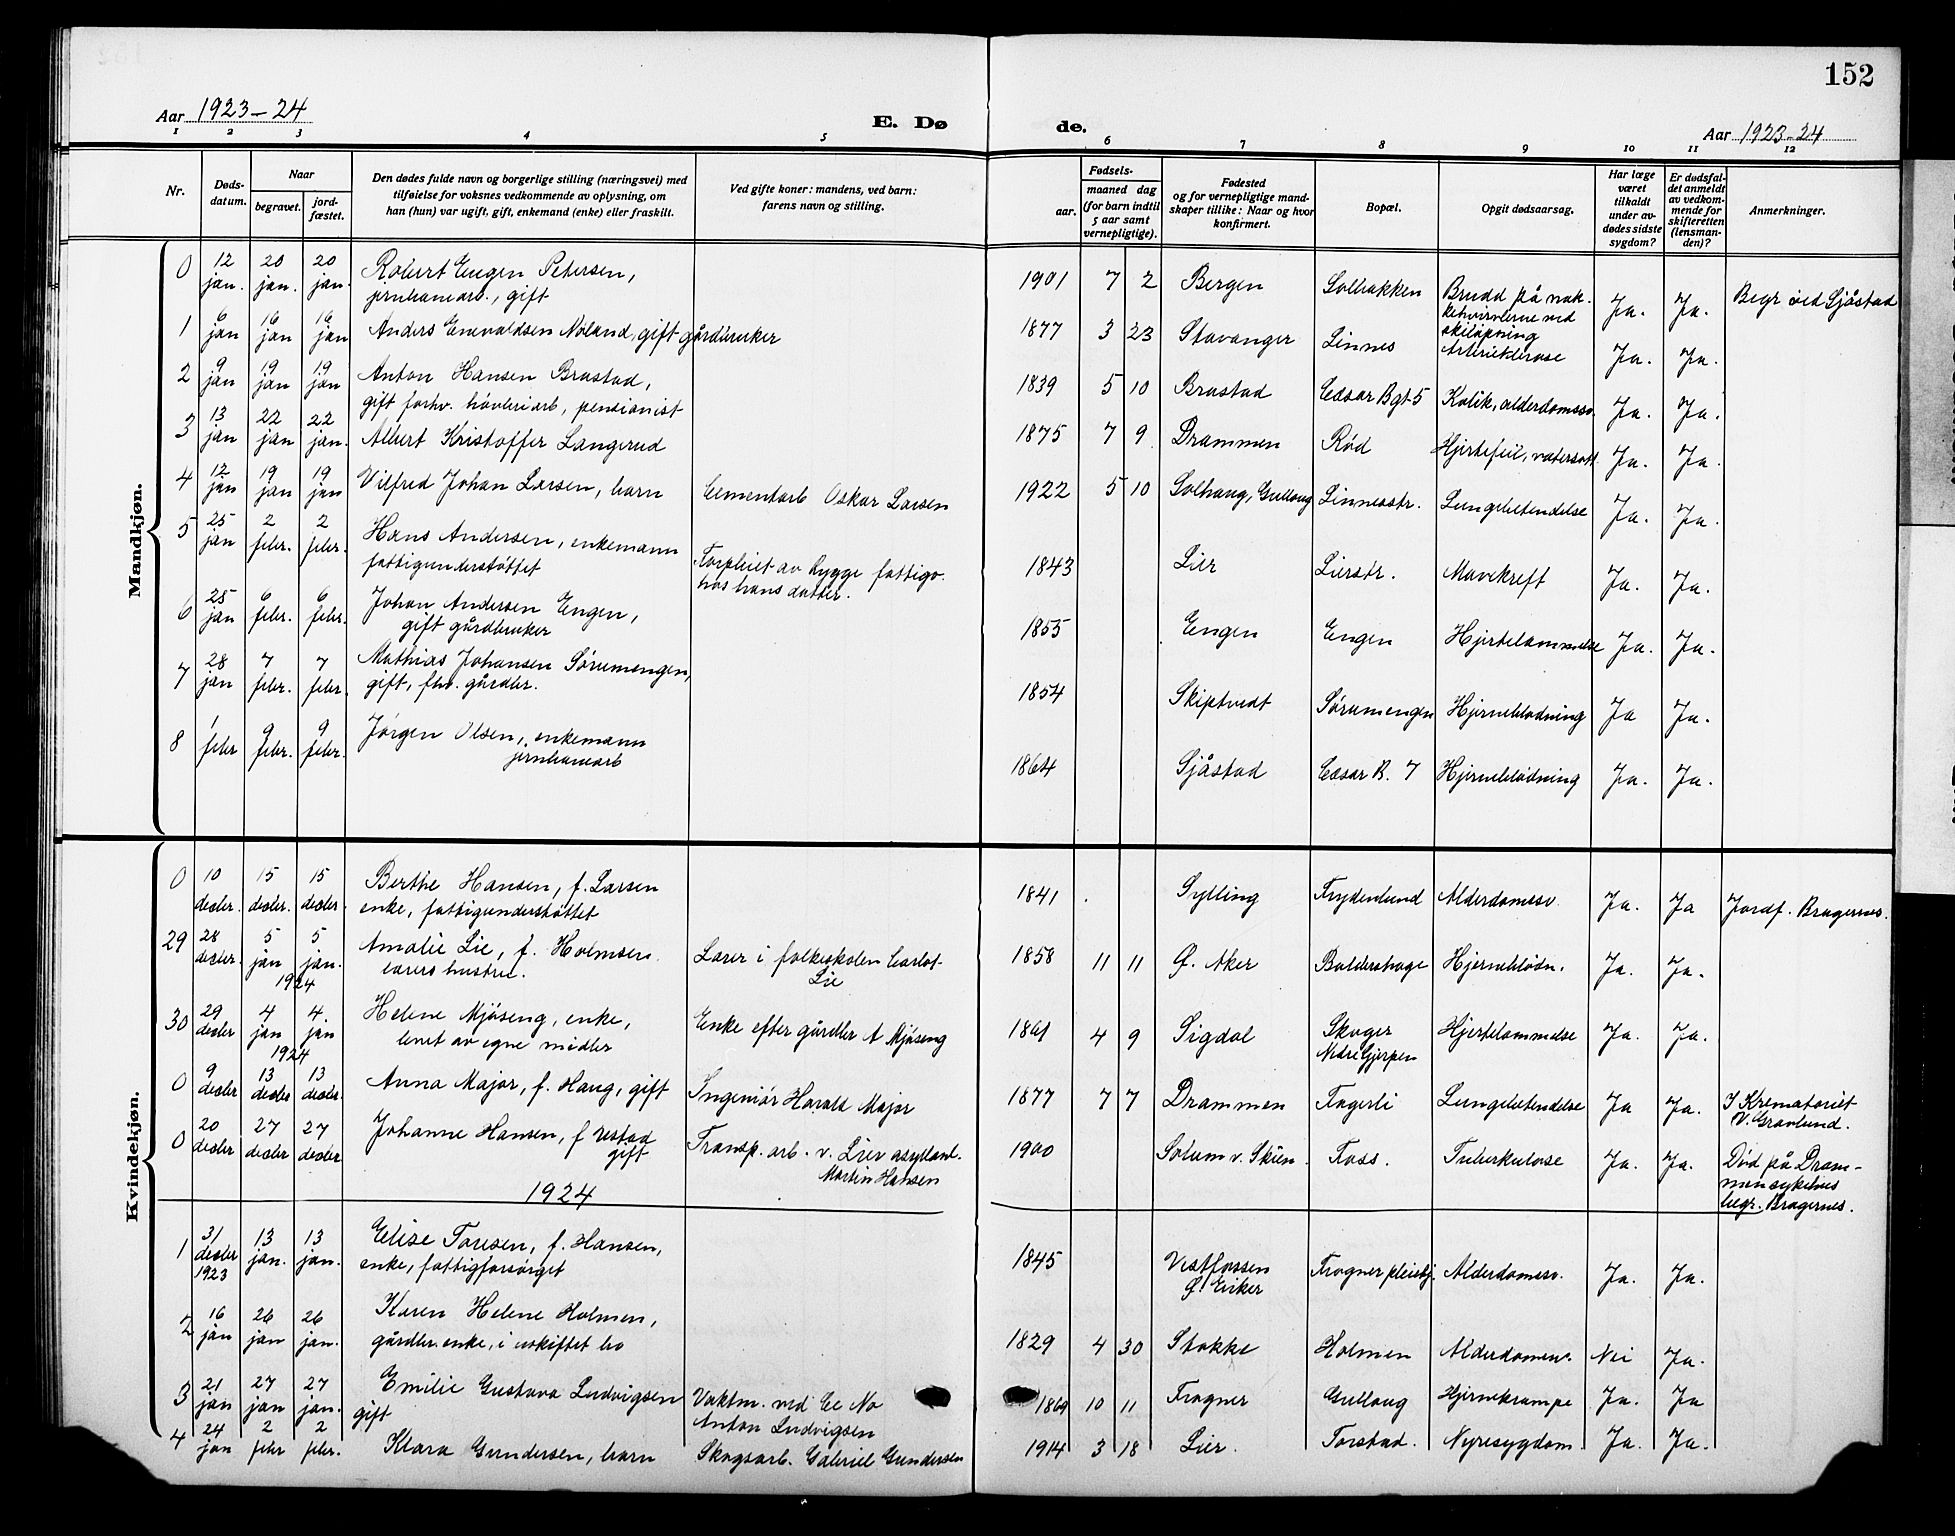 152
Aar 1923-24
E. Dø
de.
Aar 1923-24
1 2 3 4 5 6 7 8 9 10 11 12
Nr.
Døds-
datum.
Naar
begravet.
jord-
fæstet.
Den dødes fulde navn og borgerlige stilling (næringsvei) med
tilføielse for voksnes vedkommende av oplysning, om
han (hun) var ugift, gift, enkemand (enke) eller fraskilt.
Ved gifte koner: mandens, ved barn:
farens navn og stilling.
Fødsels-
aar.
maaned dag
(for barn indtil
5 aar samt
vernepligtige).
Fødested
og for vernepligtige mand-
skaper tillike: Naar og hvor
konfirmert.
Bopæl.
Opgit dødsaarsag.
Har læge
været
tilkaldt
under av-
dødes sidste
sygdom?
Er dødsfal-
det anmeldt
av vedkom-
mende for
skifteretten
(lensman-
den)?
Anmerkninger.
Mandkjøn.
0 12 jan. 20 jan. 20 jan. Robert Eugen Petersen,
jernbanearb., gift
1901 7 2 Bergen Solbakken Brudd på nak-
kehvirvlerne ved
skiløpning
Ja. Ja. Begr ved Sjåstad
1 6 jan 16 jan 16 jan Anders Enevaldsen Noland, gift gårdbruker
1877 3 23 Stavanger Linnes Arteriesklerose Ja. Ja.
2 9 jan 19 jan 19 jan Anton Hansen Brastad,
gift forhv. høvleriarb, pensionist
1839 5 10 Brastad Cæsar Bgt 5 Kolik, alderdomssv. Ja. Ja.
3 13 jan 22 jan 22 jan. Albert Kristoffer Langerud
1875 7 9 Drammen Rød Hjertefeil, vatersott Ja. Ja.
4 12 jan 19 jan 19 jan Vilfred Johan Larsen, barn Cementarb Oskar Larsen
1922 5 10 Solhaug, Gullaug Linnesstr. Lungebetendelse Ja. Ja.
5 25 jan 2 febr. 2 febr. Hans Andersen, enkemann
fattigunderstøttet
Forpleiet av Rygge fattigv.
hos hans datter.
1843 Lier Lierstr. Mavekreft Ja. Ja.
6 25 jan 6 febr. 6 febr. Johan Andersen Engen,
gift gårdbruker
1855 Engen Engen Hjertelammelse Ja. Ja.
7 28 jan 7 febr. 7 febr. Mathias Johansen Sørumengen,
gift, fhv. gårdbr.
1854 Skiptvedt Sørumengen Hjerneblødning Ja Ja.
8 1 febr 9 febr. 9 febr. Jørgen Olsen, enkemann
jernbanearb
1864 Sjåstad Cæsar B. 7 Hjerneblødning Ja. Ja.
Kvindekjøn.
0 10 decbr. 15 decbr. 15 decbr. Berthe Hansen, f. Larsen
enke, fattigunderstøttet
1841 Sylling Frydenlund Alderdomssv. Ja. Ja Jordf. Bragernes.
29 28 decbr. 5 jan 5 jan. 1924 Amalie Lie, f. Holmsen.
lærers hustru.
Lærer i folkeskolen Carlot
Lie
1858 11 11 Ø. Aker Baldershage Hjerneblødn. Ja. Ja.
30 29 decbr 4 jan 4. jan 1924 Helene Mjøseng, enke,
levet av egne midler
Enke efter gårdbr A Mjøseng
1861 4 9 Sigdal Skoger
Nedre Gjerpen
Hjertelammelse Ja. Ja.
0 9 decbr 13 decbr 13 decbr. Anna Major, f. Haug, gift Ingeniør Harald Major
1877 7 7 Drammen Fagerli Lungebetendelse Ja Ja. I Krematoriet
V. Gravlund.
0 20 decbr 27 decbr 27 decbr Johanne Hansen, f restad
gift
Transp. arb. v. Lier asyl
Martin Hansen
1900 Solum v. Skien. Foss. Tuberkulose Ja. Ja. Død på Dram-
men sykehus
begr. Bragernes.
1924
1 31 decbr 1923 13 jan. 13 jan. Elise Toresen, f. Hansen,
enke, fattigforsørget
1845 Vestfossen
Ø. Eiker
Frogner pleiehj. Alderdomssv. Ja. Ja.
2 16 jan 26 jan 26 jan. Karen Helene Holmen,
gårdbr. enke, i uskiftet bo
1829 4 30 Stokke Holmen Alderdomssv. Nei Ja.
3 21 jan 27 jan 27 jan. Emilie Gustava Ludvigsen
gift
Vaktm. ved Ee No
Anton Ludvigsen
1869 10 11 Frogner Gullaug Hjernekrampe Ja. Ja
4 24 jan 2 febr 2 febr. Klara Gundersen, barn Skogsarb. Gabriel Gundersen
1914 3 18 Lier. Torstad. Nyresygdom. Ja. Ja.